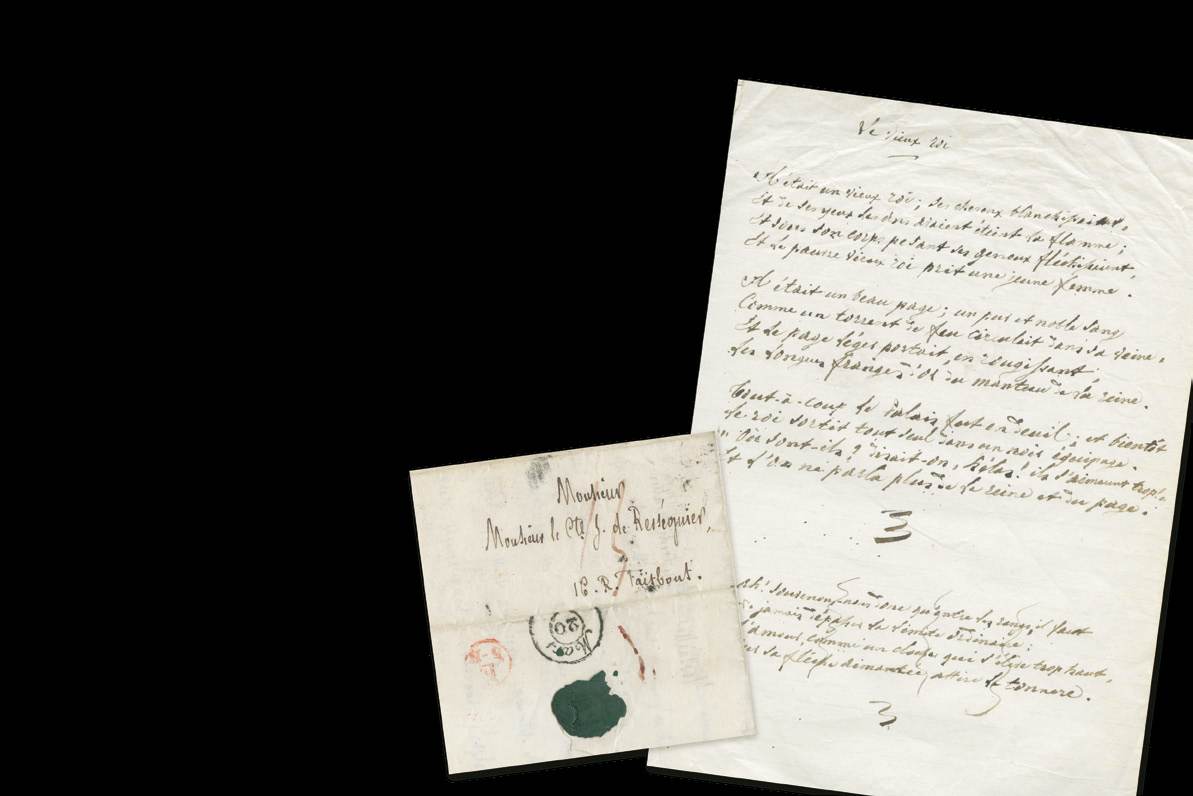 Le vieux roi
Il était un vieux roi ; ses cheveux blanchissaient,
Et de ses yeux les ans avaient éteint la flamme ;
Et sous son corps pesant ses genoux fléchissaient,
Et le pauvre vieux roi prit une jeune femme.
Il était un beau page ; un pur et noble sang
Comme un torrent de feu circulait dans sa veine,
Et le page léger portait, en rougissant,
Les longues franges d'or du manteau de la reine.
Tout-à-coup le palais fut en deuil ; et bientôt
Le roi sortit tout seul dans un noir équipage.
" Où sont-ils ? disait-on, hélas ! ils s'aimaient trop !.
Et l'on ne parla plus de la reine et du page.
Monsieur
Monsieur le Cte J. de Rességuier,
16. R. Taitbout.
oh! souvenons-nous que entre les rangs, il faut
jamais dépasser la limite ordinaire :
L'amour, comme un clocher qui s'élève trop haut,
sa flèche démantée attire le tonnerre.
20